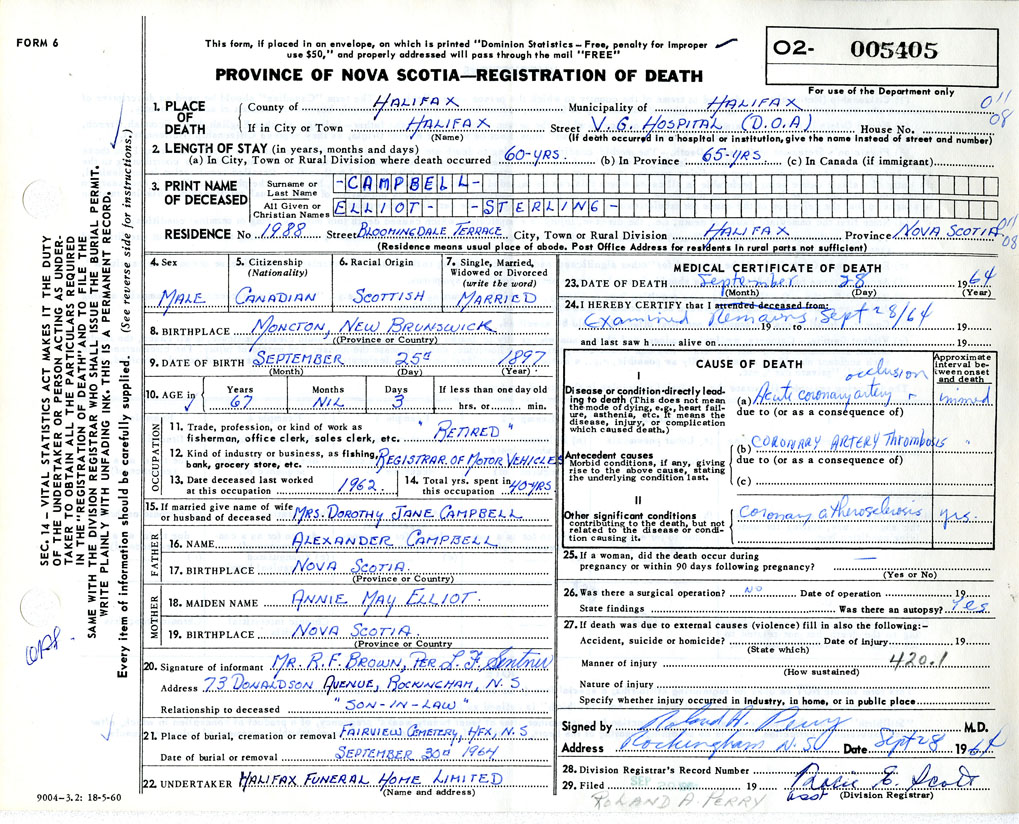 FORM 6
This form, if placed in an envelope, on which is printed "Dominion Statistics – Free, penalty for improper
use $50," and properly addressed will pass through the mail "FREE"
PROVINCE OF NOVA SCOTIA—REGISTRATION OF DEATH
02- 005405
For use of the Department only
011
08
1. PLACE OF DEATH
County of HALIFAX Municipality of HALIFAX
If in City or Town HALIFAX Street V. G. HOSPITAL (D.O.A) House No.
(Name) (If death occurred in a hospital or institution, give the name instead of street and number)
2. LENGTH OF STAY (in years, months and days)
(a) In City, Town or Rural Division where death occurred 60-YRS. (b) In Province 65-YRS. (c) In Canada (if immigrant)
3. PRINT NAME OF DECEASED
Surname or Last Name -CAMPBELL-
All Given or Christian Names ELLIOT- -STERLING-
RESIDENCE No 1988 Street BLOOMINGDALE TERRACE City, Town or Rural Division HALIFAX Province NOVA SCOTIA
011
08
(Residence means usual place of abode. Post Office Address for residents in rural parts not sufficient)
4. Sex
MALE
5. Citizenship
(Nationality)
CANADIAN
6. Racial Origin
SCOTTISH
7. Single, Married,
Widowed or Divorced
(write the word)
MARRIED
8. BIRTHPLACE MONCTON, NEW BRUNSWICK
(Province or Country)
9. DATE OF BIRTH SEPTEMBER 25th 1897
(Month) (Day) (Year)
10. AGE in
Years Months Days If less than one day old
67 NIL 3 hrs. or min.
OCCUPATION
11. Trade, profession, or kind of work as
fisherman, office clerk, sales clerk, etc. "RETIRED"
12. Kind of industry or business, as fishing,
bank, grocery store, etc. REGISTRAR OF MOTOR VEHICLES
13. Date deceased last worked
at this occupation 1962
14. Total yrs. spent in
this occupation 40 YRS
15. If married give name of wife
or husband of deceased MRS. DOROTHY JANE CAMPBELL
FATHER
16. NAME ALEXANDER CAMPBELL
17. BIRTHPLACE NOVA SCOTIA.
(Province or Country)
MOTHER
18. MAIDEN NAME ANNIE MAY ELLIOT.
19. BIRTHPLACE NOVA SCOTIA.
(Province or Country
20. Signature of informant MR. R. F. BROWN, PER L. F. Sentner
Address 73 DONALDSON AVENUE, ROCKINGHAM, N. S
Relationship to deceased "SON-IN-LAW"
21. Place of burial, cremation or removal FAIRVIEW CEMETERY, HFX, N. S
Date of burial or removal SEPTEMBER 30th 1964
22. UNDERTAKER HALIFAX FUNERAL HOME LIMITED
(Name and address)
MEDICAL CERTIFICATE OF DEATH
23. DATE OF DEATH September 28 1964
(Month) (Day) (Year)
24. I HEREBY CERTIFY that I attended deceased from:
Examined Remains Sept 28/64
19 to 19
and last saw h alive on 19
CAUSE OF DEATH
Approximate interval between onset and death
I
Disease or condition directly leading to death (This does not mean the mode of dying, e.g., heart failure, asthenia, etc. It means the disease, injury, or complication which caused death.)
(a) Acute coronary artery occlusion immed
due to (or as a consequence of)
Antecedent causes
Morbid conditions, if any, giving rise to the above cause, stating the underlying condition last.
(b) CORONARY ARTERY Thrombosis "
due to (or as a consequence of)
(c)
II
Other significant conditions
contributing to the death, but not related to the disease or condition causing it.
Coronary atherosclerosis yrs.
25. If a woman, did the death occur during
pregnancy or within 90 days following pregnancy? —
(Yes or No)
26. Was there a surgical operation? NO Date of operation 19
State findings Was there an autopsy? Yes
27. If death was due to external causes (violence) fill in also the following:–
Accident, suicide or homicide? Date of injury 19
(State which)
Manner of injury 420.1
(How sustained)
Nature of injury
Specify whether injury occurred in industry, in home, or in public place
Signed by Roland A. Perry M.D.
Address Rockingham N. S. Date Sept 28 1964
28. Division Registrar's Record Number
29. Filed SEP 19 E. Scott
asst (Division Registrar)
ROLAND A. PERRY
SEC. 14 – VITAL STATISTICS ACT MAKES IT THE DUTY
OF THE UNDERTAKER OR PERSON ACTING AS UNDER-
TAKER TO OBTAIN ALL THE PARTICULARS REQUIRED
IN THE "REGISTRATION OF DEATH" AND TO FILE THE
SAME WITH THE DIVISION REGISTRAR WHO SHALL ISSUE THE BURIAL PERMIT.
WRITE PLAINLY WITH UNFADING INK. THIS IS A PERMANENT RECORD.
Every item of information should be carefully supplied. (See reverse side for instructions.)
9004-3.2: 18-5-60